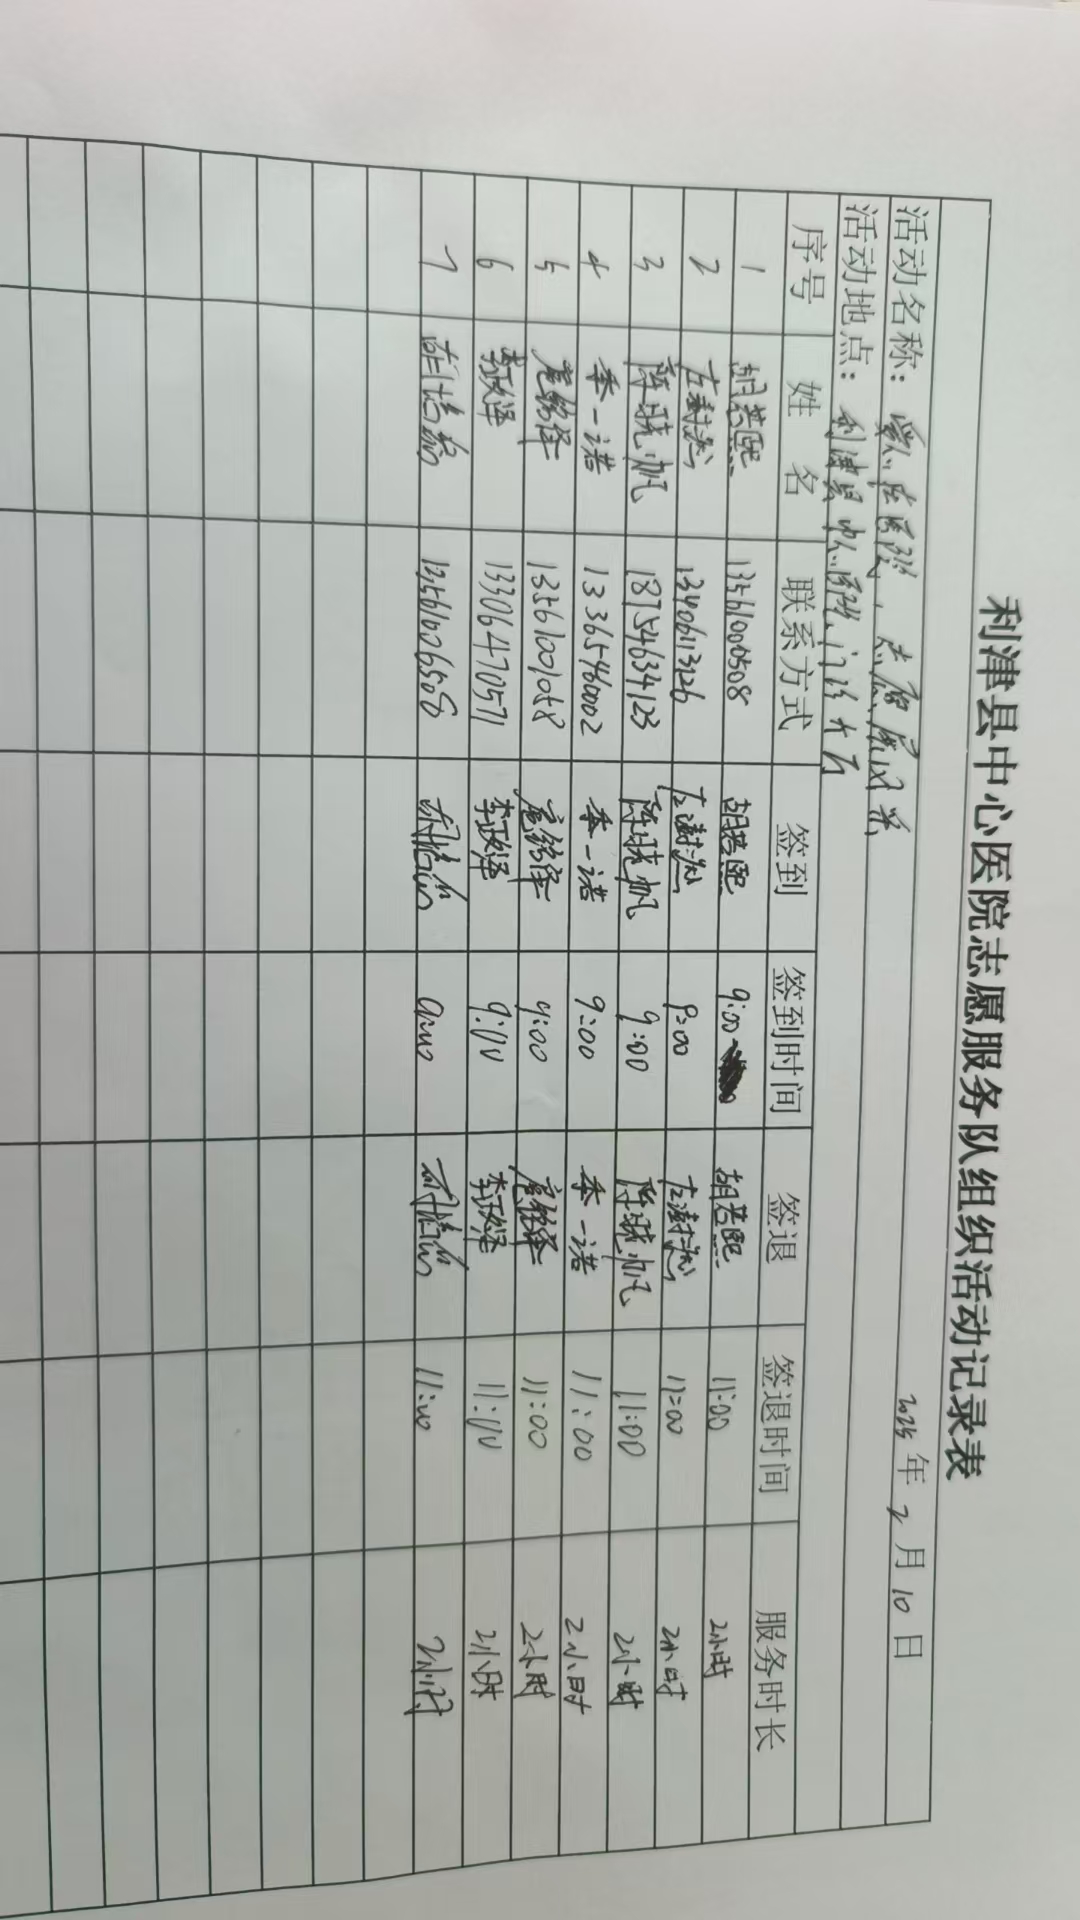 利津县中心医院志愿服务队组织活动记录表
2025年2月10日
活动名称：爱心在医院，志愿展风采
活动地点：利津县中心医院门诊大厅
序号 姓名 联系方式 签到 签到时间 签退 签退时间 服务时长
1 胡若熙 13561000508 胡若熙 9:00 胡若熙 11:00 2小时
2 左澍 13406113126 左澍 9:00 左澍 11:00 2小时
3 陈晓帆 18754634123 陈晓帆 9:00 陈晓帆 11:00 2小时
4 季一诺 13365460002 季一诺 9:00 季一诺 11:00 2小时
5 扈铭泽 13561001058 扈铭泽 9:00 扈铭泽 11:00 2小时
6 李政泽 13306470571 李政泽 9:00 李政泽 11:00 2小时
7 13561006508 9:00 11:00 2小时